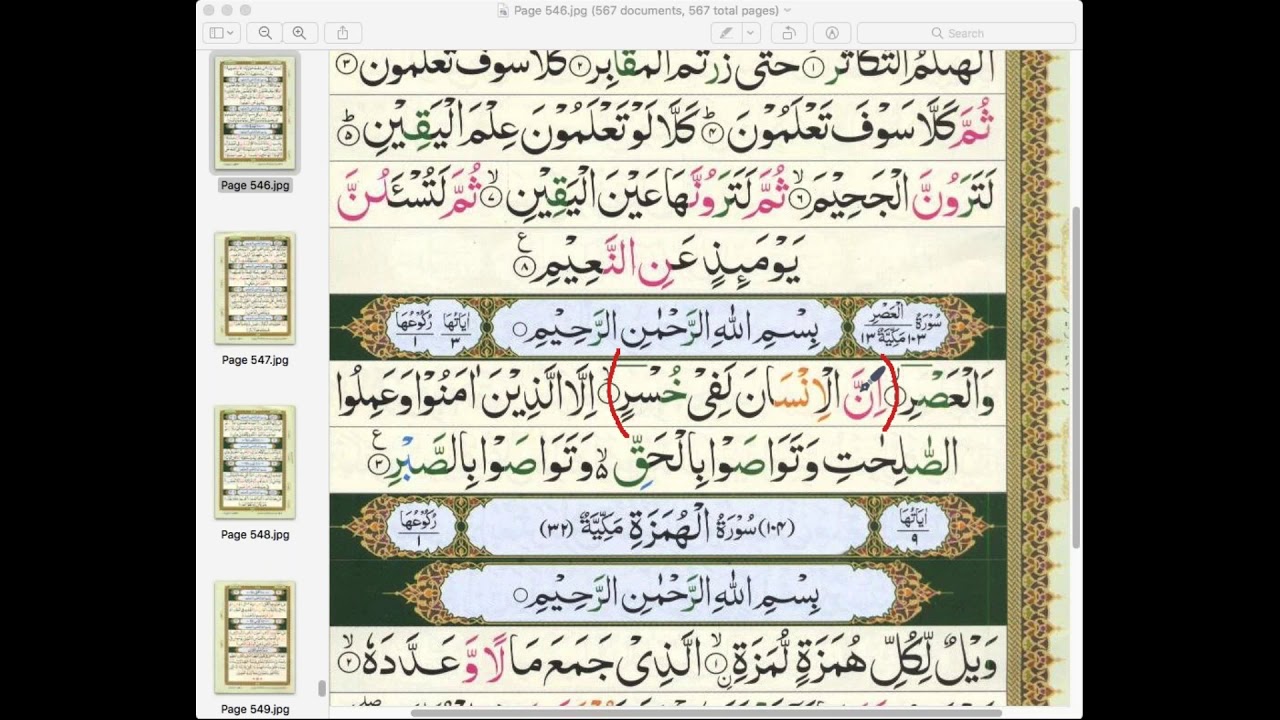 Page 546.jpg (567 documents, 567 total pages)
Search
Page 546.jpg
Page 547.jpg
Page 548.jpg
Page 549.jpg
اَلْهٰىكُمُ التَّكَاثُرُ ۙ‏﴿۱﴾ حَتّٰى زُرْتُمُ الْمَقَابِرَ ؕ‏﴿۲﴾ كَلَّا سَوْفَ تَعْلَمُوْنَ ۙ‏﴿۳﴾
ثُمَّ كَلَّا سَوْفَ تَعْلَمُوْنَ ؕ‏﴿۴﴾ كَلَّا لَوْ تَعْلَمُوْنَ عِلْمَ الْيَقِيْنِ ؕ‏﴿۵﴾
لَتَرَوُنَّ الْجَحِيْمَ ۙ‏﴿۶﴾ ثُمَّ لَتَرَوُنَّهَا عَيْنَ الْيَقِيْنِ ۙ‏﴿۷﴾ ثُمَّ لَتُسْـَٔلُنَّ
يَوْمَئِذٍ عَنِ النَّعِيْمِ ﴿۸﴾ ع
سُوْرَةُ الْعَصْرِ ۱۰۳ مَكِّيَّةٌ ۱۳
بِسْمِ اللهِ الرَّحْمٰنِ الرَّحِيْمِ
اٰيَاتُهَا ۳ رُكُوْعُهَا ۱
وَالْعَصْرِ ۙ اِنَّ الْاِنْسَانَ لَفِىْ خُسْرٍ ۙ اِلَّا الَّذِيْنَ اٰمَنُوْا وَعَمِلُوا
الصّٰلِحٰتِ وَتَوَاصَوْا بِالْحَقِّ ۙ۬ وَتَوَاصَوْا بِالصَّبْرِ ﴿۳﴾ ع
اٰيَاتُهَا ۹
(۱۰۴) سُوْرَةُ الْهُمَزَةِ مَكِّيَّةٌ (۳۲)
رُكُوْعُهَا ۱
بِسْمِ اللهِ الرَّحْمٰنِ الرَّحِيْمِ
وَيْلٌ لِّكُلِّ هُمَزَةٍ لُّمَزَةِ ۙ‏﴿۱﴾ ۨالَّذِىْ جَمَعَ مَالًا وَّعَدَّدَهٗ ۙ‏﴿۲﴾